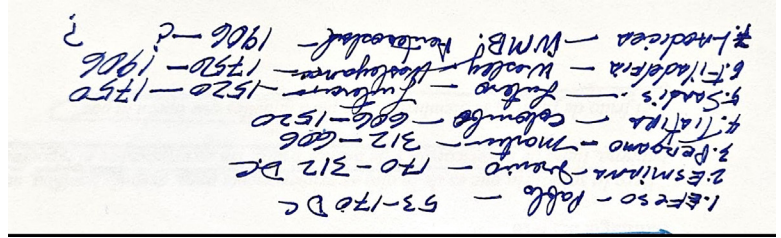 1. EFESO - Pablo - 53-170 DC
2. ESMIRNA - Ireneo - 170-312 D.C
3. Pergamo - Martin - 312-606
4. TIATIRA - Colombo - 606-1520
5. Sardis - Lutero - Luterano - 1520-1750
6. FiladelFia - Wesley - Wesleyanos - 1750-1906
7. - WMB! Pentecostal - 1906 - ¿ ?